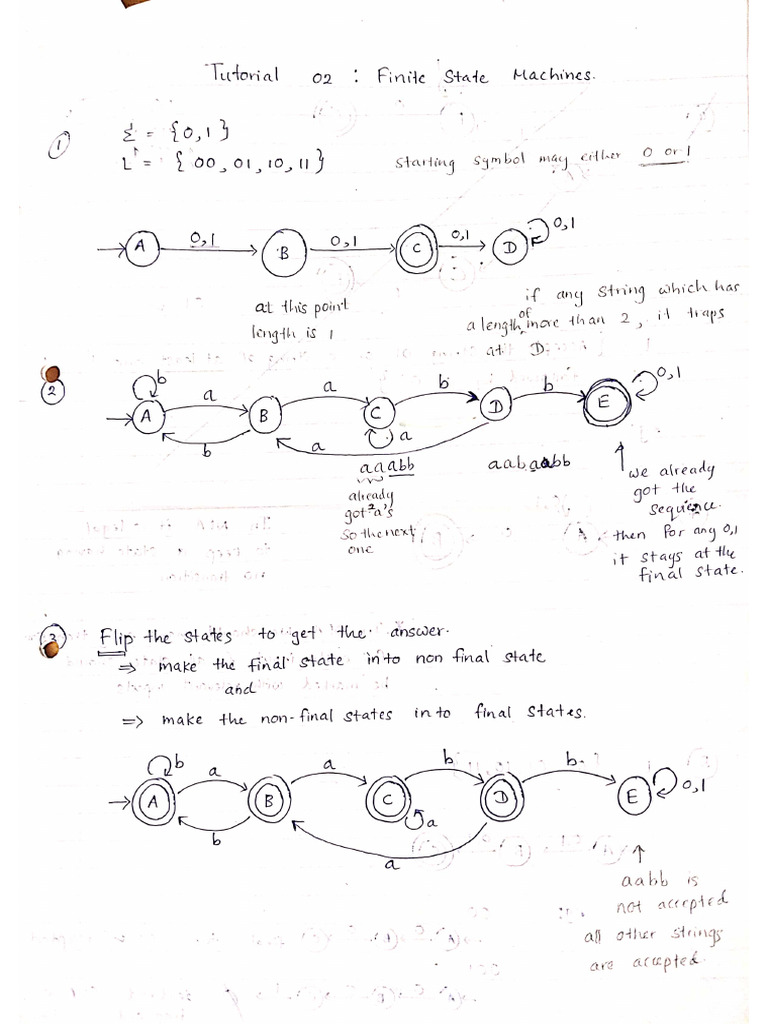 Tutorial 02 : Finite State Machines.
①
Σ = {0,1}
L = { 00, 01, 10, 11}
starting symbol may either 0 or 1
A 0,1 B 0,1 C 0,1 D 0,1
at this point
length is 1
if any string which has
a length of more than 2, it traps
at D.
②
b
A a B a C b D b E 0,1
b a a
aaabb
already
got 2 a's
so the next
one
aabaabb
we already
got the
sequence.
then for any 0,1
it stays at the
final state.
③ Flip the states to get the answer.
⇒ make the final state in to non final state
and
⇒ make the non-final states in to final states.
b
A a B a C b D b E 0,1
b a a
aabb is
not accepted
all other strings
are accepted.